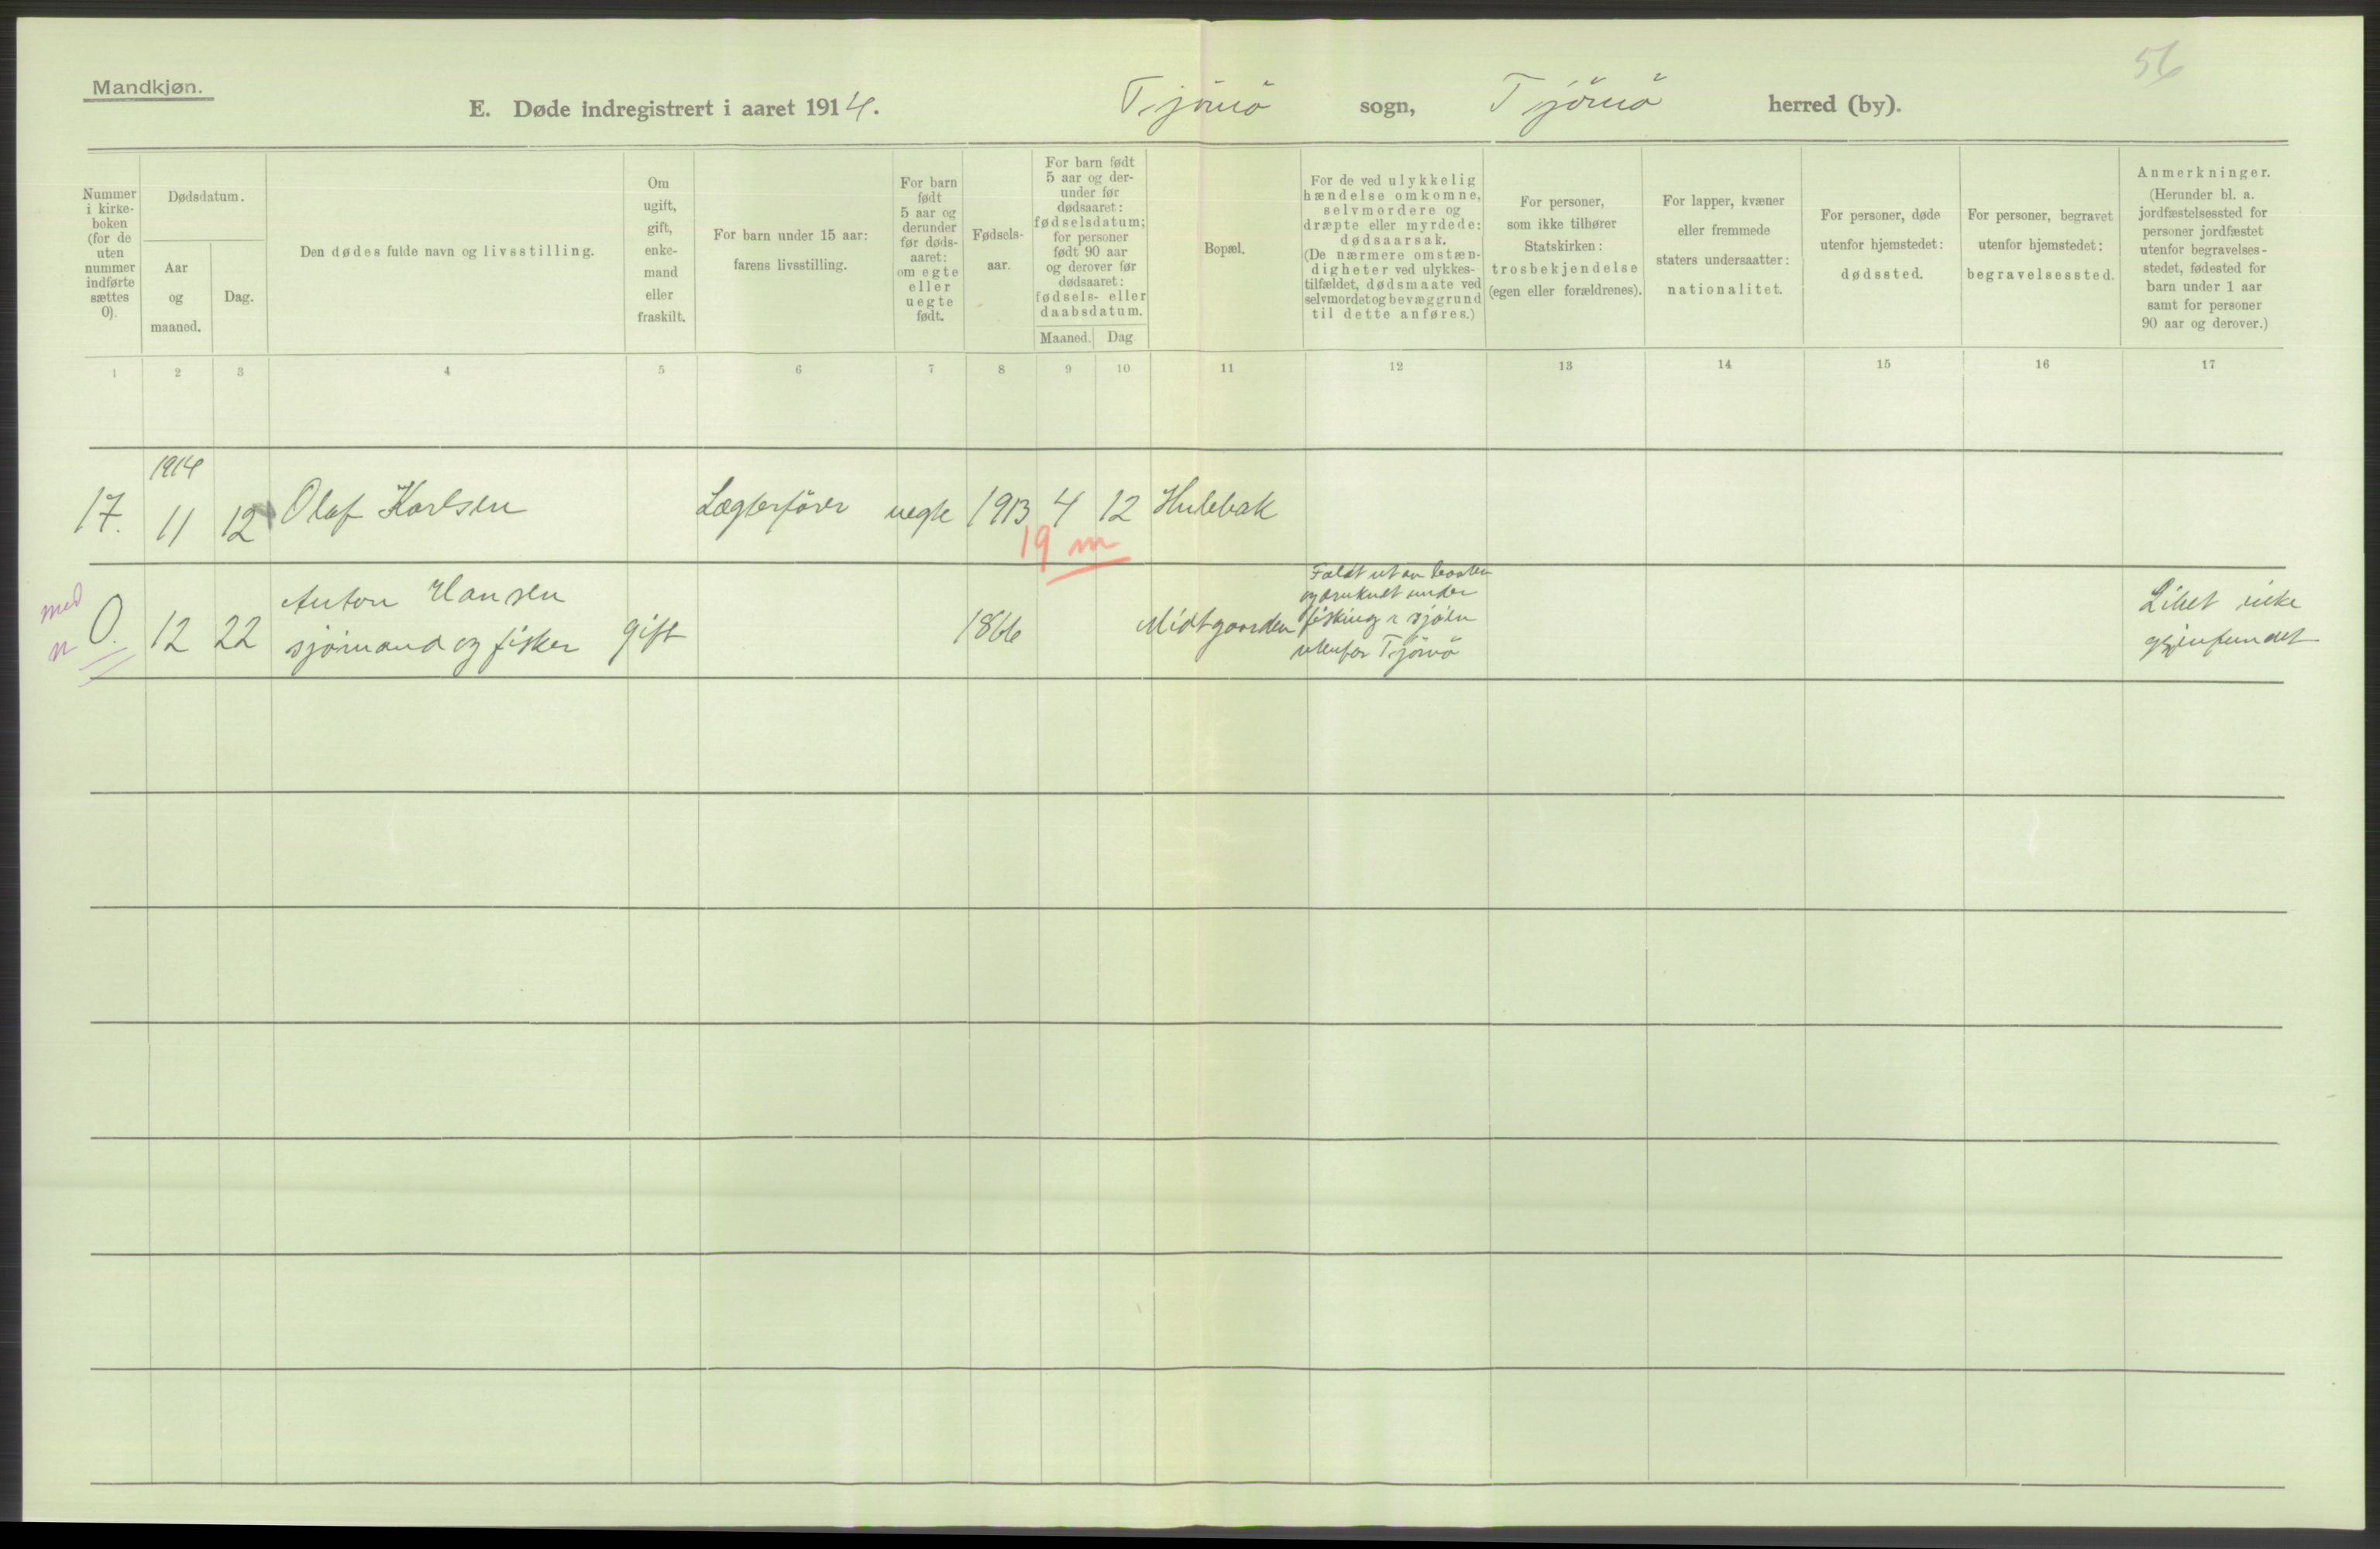 56
Mandkjøn.
E. Døde indregistrert i aaret 1914. Tjömö sogn, Tjömö herred (by).
Nummer
i kirke-
boken
(for de
uten
nummer
indførte
sættes
0).
Dødsdatum.
Aar
og
maaned.
Dag.
Den dødes fulde navn og livsstilling.
Om
ugift,
gift,
enke-
mand
eller
fraskilt.
For barn under 15 aar:
farens livsstilling.
For barn
født
5 aar og
derunder
før døds-
aaret:
om egte
eller
uegte
født.
Fødsels-
aar.
For barn født
5 aar og der-
under før
dødsaaret:
fødselsdatum;
for personer
født 90 aar
og derover før
dødsaaret:
fødsels- eller
daabsdatum.
Maaned. Dag
Bopæl.
For de ved ulykkelig
hændelse omkomne,
selvmordere og
dræpte eller myrdede:
dødsaarsak.
(De nærmere omstæn-
digheter ved ulykkes-
tilfældet, dødsmaate ved
selvmordet og bevæggrund
til dette anføres.)
For personer,
som ikke tilhører
Statskirken:
trosbekjendelse
(egen eller forældrenes).
For lapper, kvæner
eller fremmede
staters undersaatter:
nationalitet.
For personer, døde
utenfor hjemstedet:
dødssted.
For personer, begravet
utenfor hjemstedet:
begravelsessted.
Anmerkninger.
(Herunder bl. a.
jordfæstelsessted for
personer jordfæstet
utenfor begravelses-
stedet, fødested for
barn under 1 aar
samt for personer
90 aar og derover.)
1 2 3 4 5 6 7 8 9 10 11 12 13 14 15 16 17
1914
17. 11 12 Olaf Karlsen Lægterförer uegte 1913 4 12 Hulebak
19 m
med
n
0. 12 22 Anton Hansen
sjömand og fisker gift 1866 Midtgaarden
Faldt ut av baaten
og druknet under
fisking i sjöen
utenfor Tjömö
Liket ikke
gjenfundet